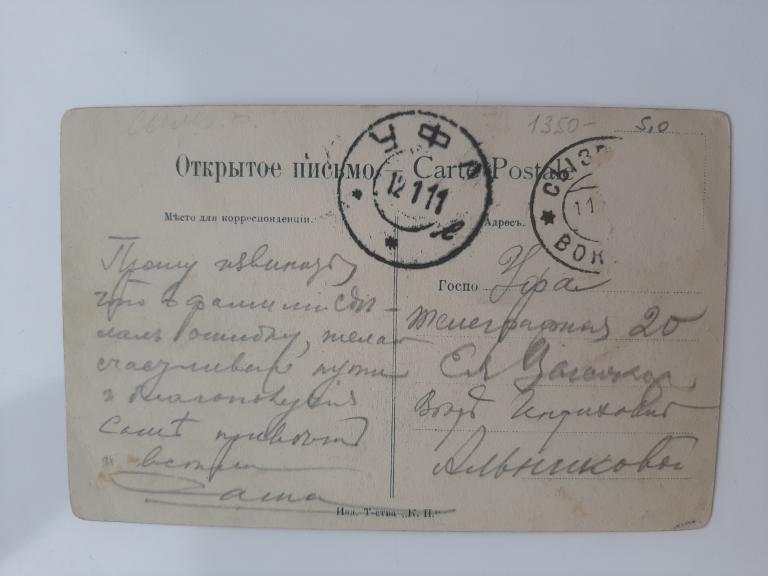 1350- 5,0
Открытое письмо. — Carte Postale
УФА
12 1 11
СЫЗР
11
ВОК
Мѣсто для корреспонденціи.
Адресъ.
Прошу извинить
что в фамиліи сдѣ-
лалъ ошибку, желаю
счастливаго пути
и благополучія
Саша
Госпо Уфа
Телеграфная 20
Ея
Альниковой
Изд. Т-ства „К. П."